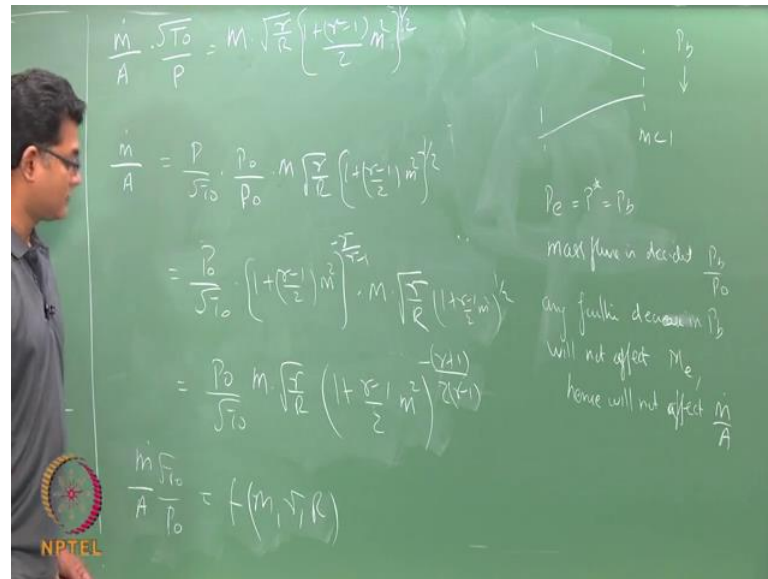 ṁ/A · √T₀/P = M · √(γ/R) {1+(γ-1)/2 M²}^1/2
ṁ/A = P/√T₀ · P₀/P₀ · M √(γ/R) {1+(γ-1)/2 M²}^1/2
= P₀/√T₀ · {1+(γ-1)/2 M²}^-γ/γ-1 · M · √(γ/R) (1+γ-1/2 M²)^1/2
= P₀/√T₀ M · √(γ/R) (1+γ-1/2 M²)^-(γ+1)/2(γ-1)
ṁ/A √T₀/P₀ = f(M, γ, R)
P_b ↓
M<1
P_e = P* = P_b
mass flux is P_b/P₀
any further decrease in P_b
will not affect M_e,
hence will not affect ṁ/A
NPTEL